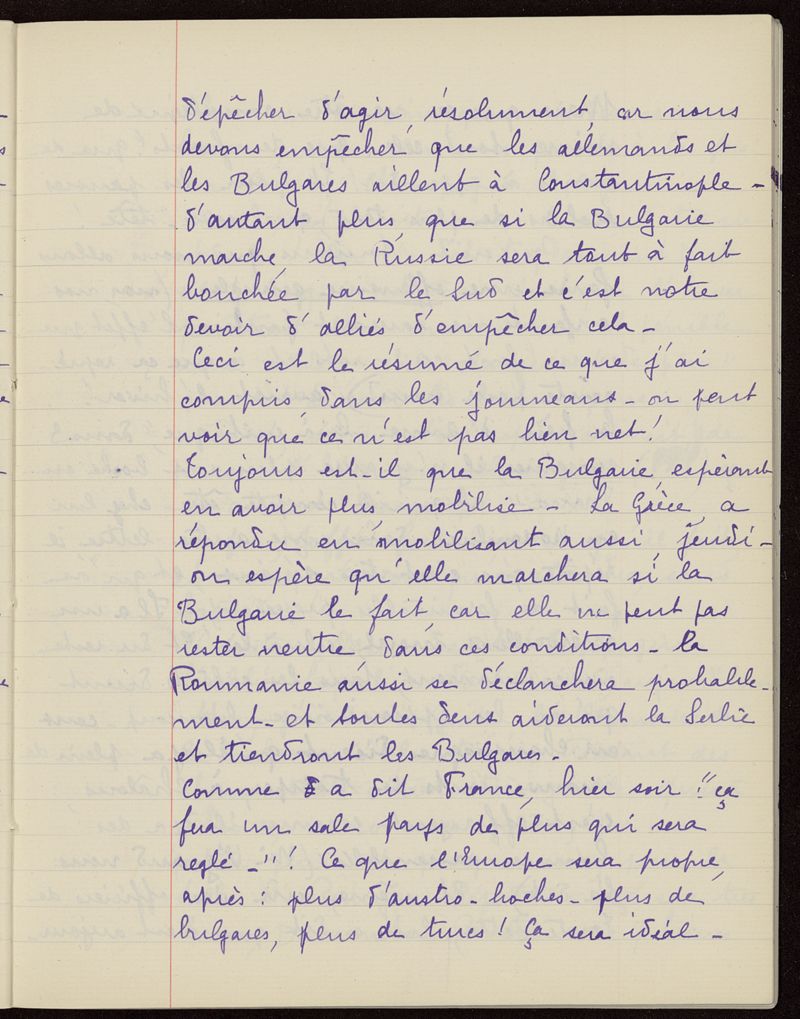 d'épêcher d'agir, résolument, car nous
devons empêcher, que les allemands et
les Bulgares aillent à Constantinople -
d'autant plus, que si la Bulgarie
marche, la Russie sera tout à fait
bouchée par le Sud et c'est notre
devoir d'alliés d'empêcher cela -
Ceci est le résumé de ce que j'ai
compris, dans les journeaux - on peut
voir que ce n'est pas bien net !
Toujours est-il que la Bulgarie, espérant
en avoir plus, mobilise - La Grèce, a
répondu en mobilisant aussi, jeudi -
on espère qu'elle marchera si la
Bulgarie le fait, car elle ne peut pas
rester neutre dans ces conditions - La
Roumanie aussi se déclanchera probable-
ment - et toutes deux aideront la Serbie
et tiendront les Bulgares -
Comme a dit France, hier soir : "ça
fera un sale pays de plus qui sera
reglé - " ! Ce que l'Europe sera propre,
après : plus d'austro-boches - plus de
bulgares, plus de turcs ! Ça sera idéal -